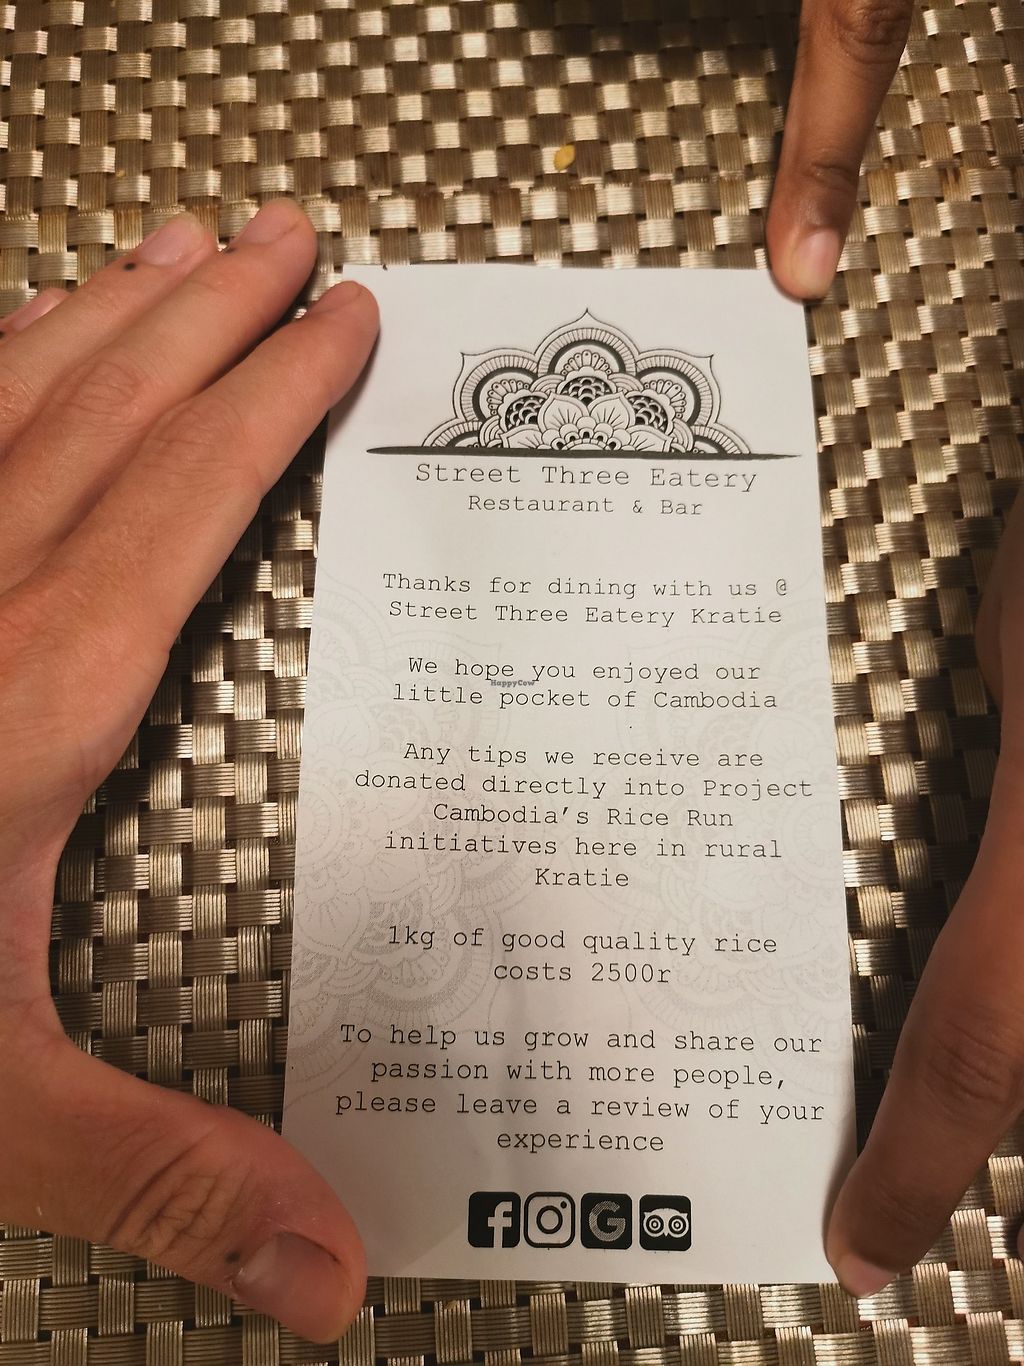 Street Three Eatery
Restaurant & Bar
Thanks for dining with us @
Street Three Eatery Kratie
We hope you enjoyed our
HappyCow
little pocket of Cambodia
Any tips we receive are
donated directly into Project
Cambodia's Rice Run
initiatives here in rural
Kratie
1kg of good quality rice
costs 2500r
To help us grow and share our
passion with more people,
please leave a review of your
experience
f G